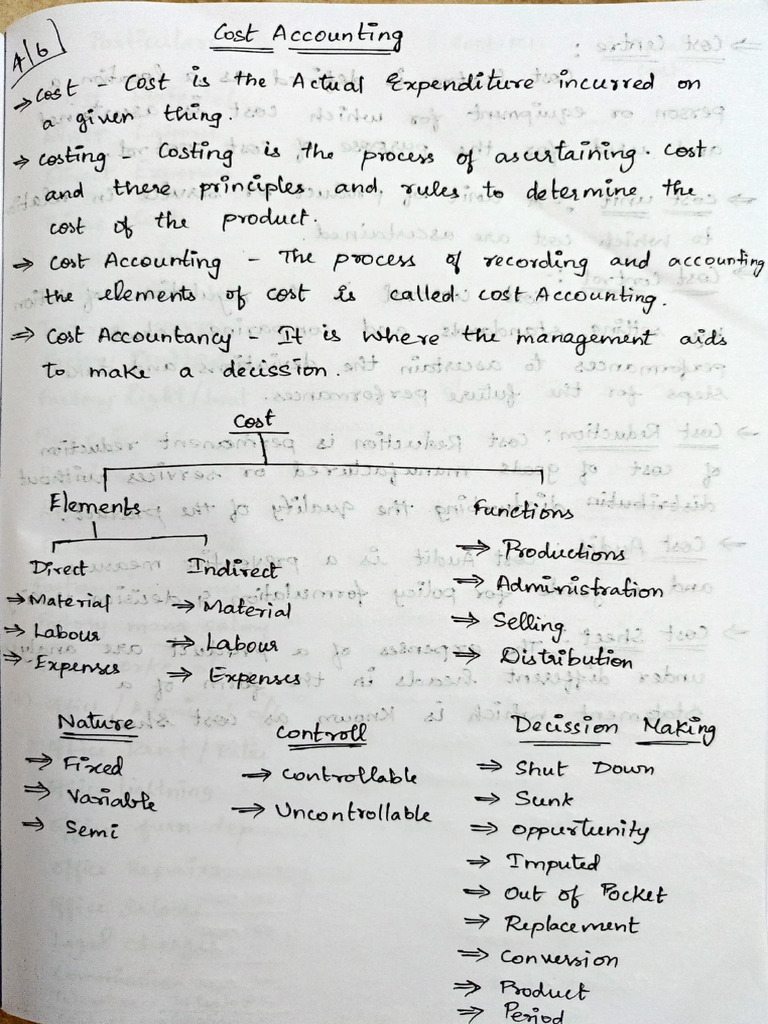 4/6
Cost Accounting
⇒ Cost - Cost is the Actual Expenditure incurred on
a given thing.
⇒ Costing - Costing is the process of ascertaining cost
and there principles and rules to determine the
cost of the product.
⇒ Cost Accounting - The process of recording and accounting
the elements of cost is called cost Accounting.
⇒ Cost Accountancy - It is where the management aids
to make a decission.
Cost
Elements
Functions
Direct
Indirect
⇒ Material
⇒ Labour
⇒ Expenses
⇒ Material
⇒ Labour
⇒ Expenses
⇒ Productions
⇒ Administration
⇒ Selling
⇒ Distribution
Nature
⇒ Fixed
⇒ Variable
⇒ Semi
Controll
⇒ Controllable
⇒ Uncontrollable
Decission Making
⇒ Shut Down
⇒ Sunk
⇒ Oppurtunity
⇒ Imputed
⇒ Out of Pocket
⇒ Replacement
⇒ Conversion
⇒ Product
⇒ Period